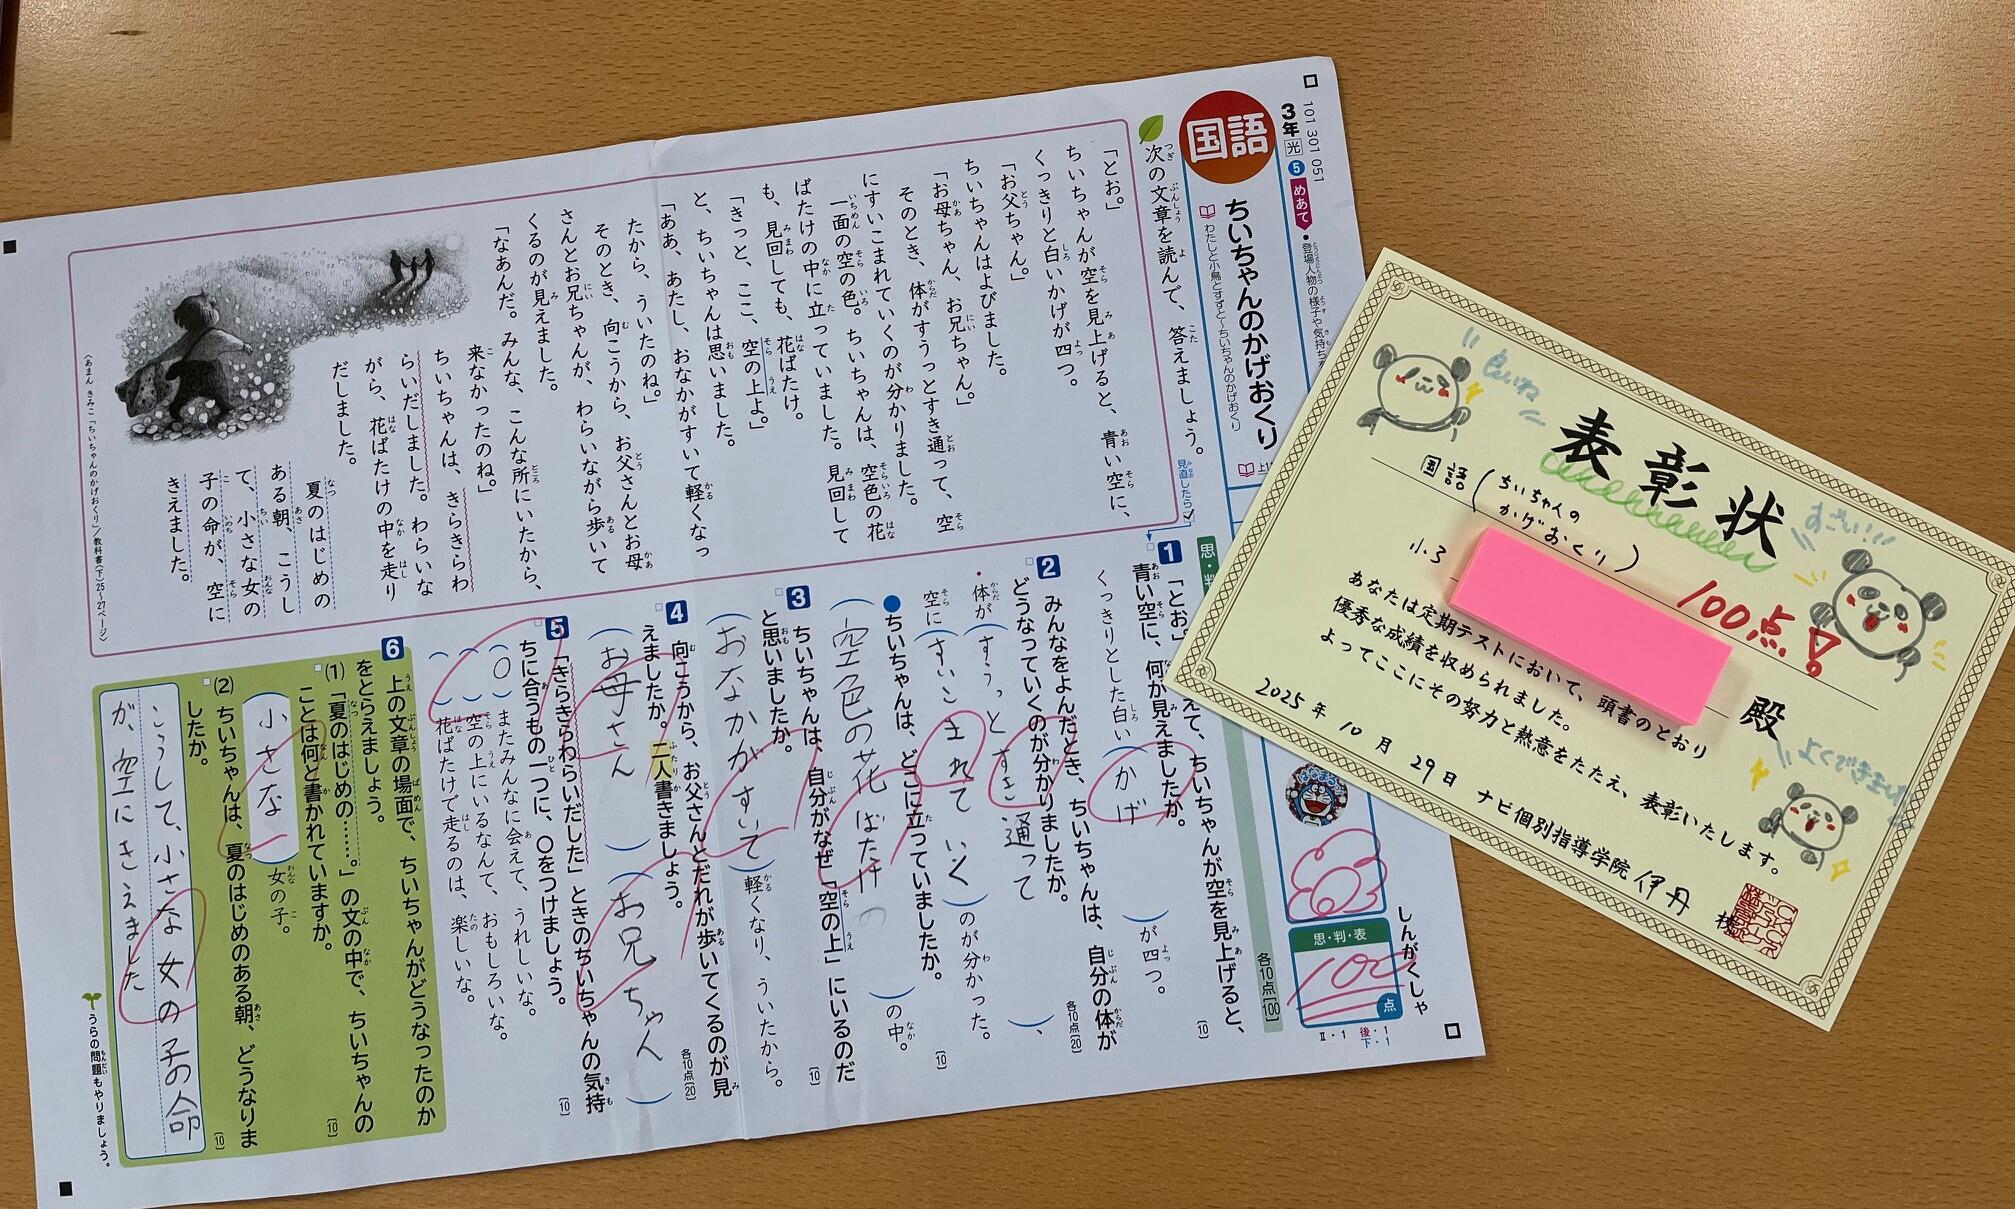 101 301 051
3年 光 5 めあて ・登場人物の様子や気持ち
国語
ちいちゃんのかげおくり
わたしと小鳥とすずと〜ちいちゃんのかげおくり
次の文章を読んで、答えましょう。
見直したら✓
「とお。」
ちいちゃんが空を見上げると、青い空に、
くっきりと白いかげが四つ。
「お父ちゃん。」
ちいちゃんはよびました。
「お母ちゃん、お兄ちゃん。」
そのとき、体がすうっとすき通って、空
にすいこまれていくのが分かりました。
一面の空の色。ちいちゃんは、空色の花
ばたけの中に立っていました。見回して
も、見回しても、花ばたけ。
「きっと、ここ、空の上よ。」
と、ちいちゃんは思いました。
「ああ、あたし、おなかがすいて軽くなっ
たから、ういたのね。」
そのとき、向こうから、お父さんとお母
さんとお兄ちゃんが、わらいながら歩いて
くるのが見えました。
「なあんだ。みんな、こんな所にいたから、
来なかったのね。」
ちいちゃんは、きらきらわ
らいだしました。わらいな
がら、花ばたけの中を走り
だしました。
夏のはじめの
ある朝、こうし
て、小さな女の
子の命が、空に
きえました。
〈あまん きみこ「ちいちゃんのかげおくり」/教科書(下)25〜27ページ〉
思・判
各10点[100]
1 「とお。」
えて、ちいちゃんが空を見上げると、
青い空に、何が見えましたか。
[10]
くっきりとした白い(かげ)が四つ。
2 みんなをよんだとき、ちいちゃんは、自分の体が
どうなっていくのが分かりましたか。
各10点[20]
・体が(すうっとすき通って)、
空に(すいこまれていく)のが分かった。
●ちいちゃんは、どこに立っていましたか。
[10]
(空色の花ばたけの)の中。
3 ちいちゃんは、自分がなぜ「空の上」にいるのだ
と思いましたか。
[10]
(おなかがすいて)軽くなり、ういたから。
4 向こうから、お父さんとだれが歩いてくるのが見
えましたか。二人書きましょう。
各10点[20]
(お母さん)(お兄ちゃん)
5 「きらきらわらいだした」ときのちいちゃんの気持
ちに合うもの一つに、○をつけましょう。
[10]
(○)またみんなに会えて、うれしいな。
( )空の上にいるなんて、おもしろいな。
( )花ばたけで走るのは、楽しいな。
6 上の文章の場面で、ちいちゃんがどうなったのか
をとらえましょう。
(1) 「夏のはじめの……。」の文の中で、ちいちゃんの
ことは何と書かれていますか。
[10]
(小さな)女の子。
(2) ちいちゃんは、夏のはじめのある朝、どうなりま
したか。
[10]
こうして、小さな女の子の命
が、空にきえました
うらの問題もやりましょう。
はなまる
思・判・表
100
点
しんがくしゃ
II・1 後・1
下・1
表彰状
色いね
すごい!!!
国語(ちいちゃんの
かげおくり)
100点!
小3
殿
あなたは定期テストにおいて、頭書のとおり
優秀な成績を収められました。
よってここにその努力と熱意をたたえ、表彰いたします。
よくできました
2025年 10月 29日 ナビ個別指導学院 伊丹 校